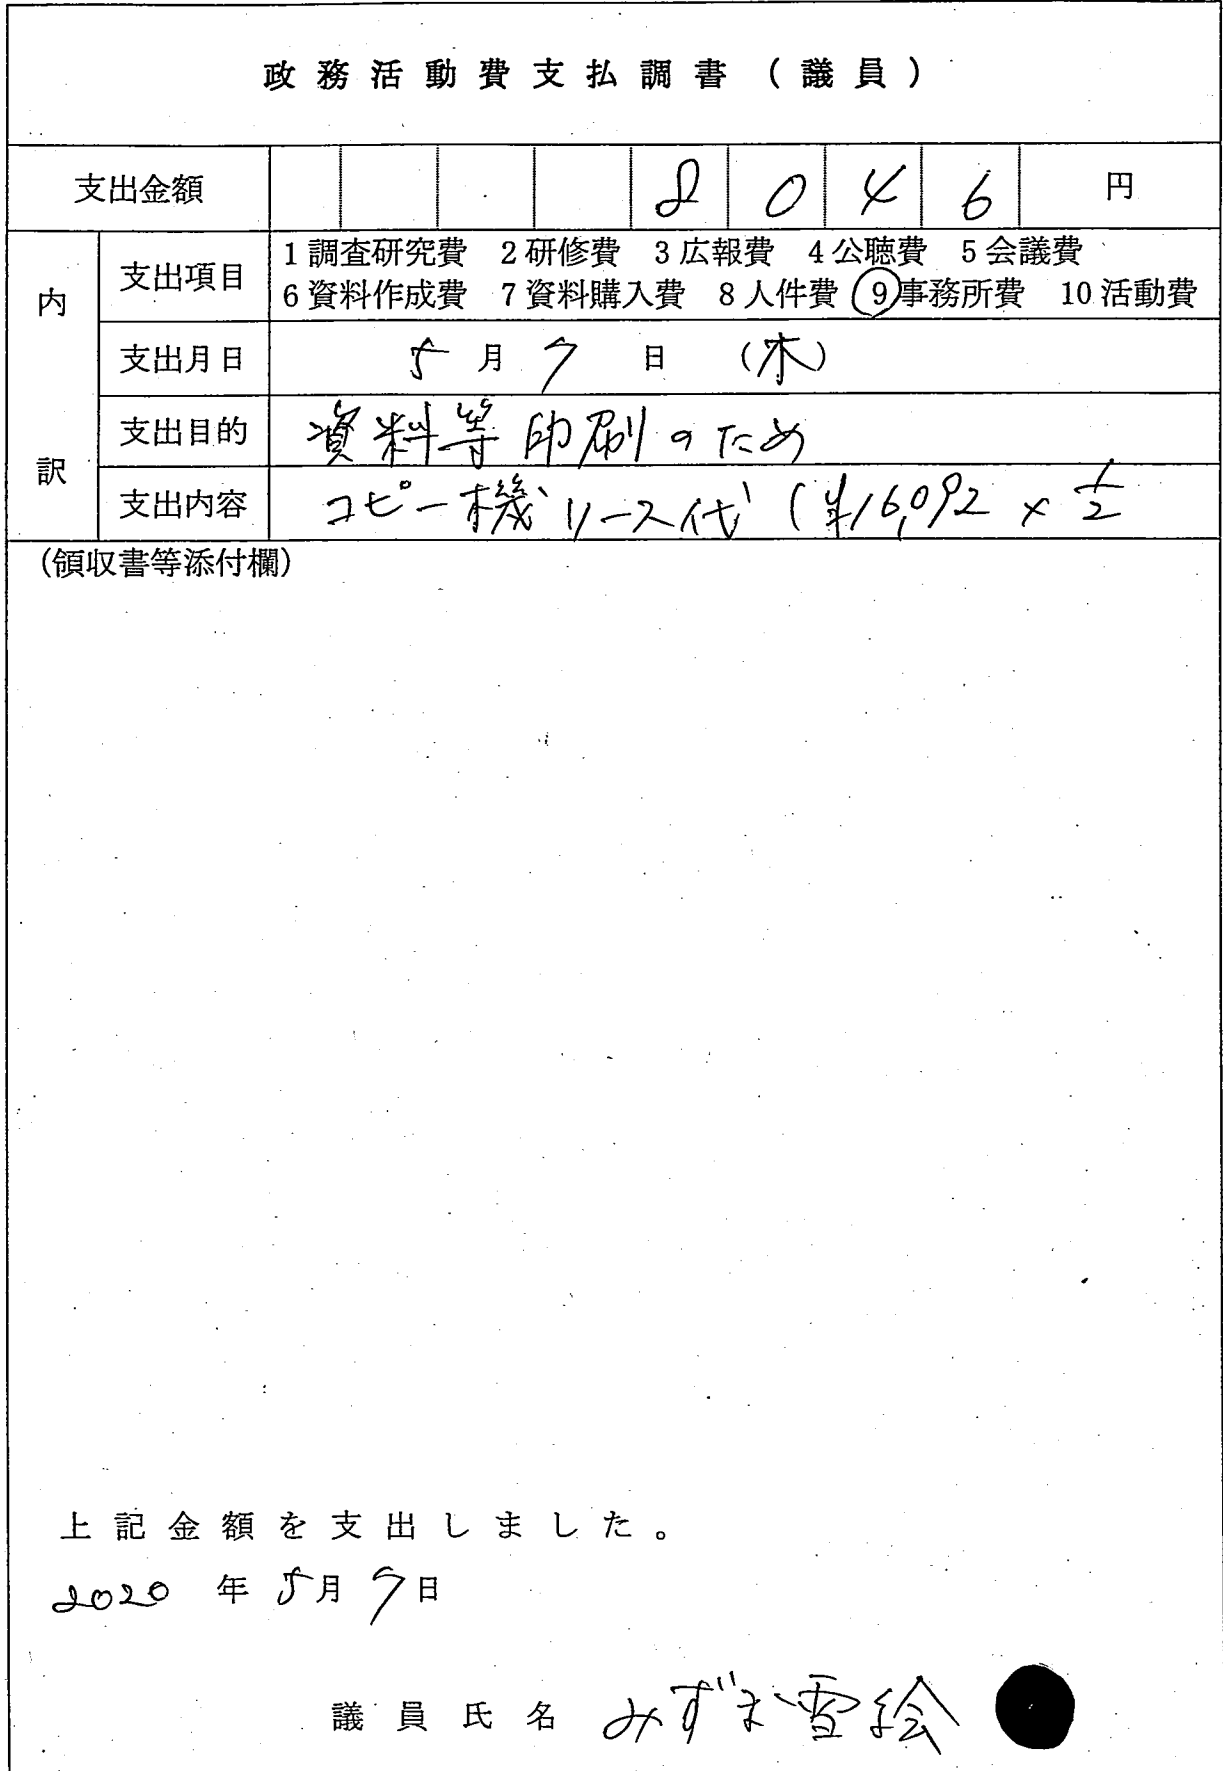 政務活動費支払調書（議員）
支出金額 8046円
内訳
支出項目 1調査研究費 2研修費 3広報費 4公聴費 5会議費
6資料作成費 7資料購入費 8人件費 ⑨事務所費 10活動費
支出月日 5月7日（木）
支出目的 資料等印刷のため
支出内容 コピー機リース代（¥16,092×1/2
（領収書等添付欄）
上記金額を支出しました。
2020年5月7日
議員氏名 みずま雪絵